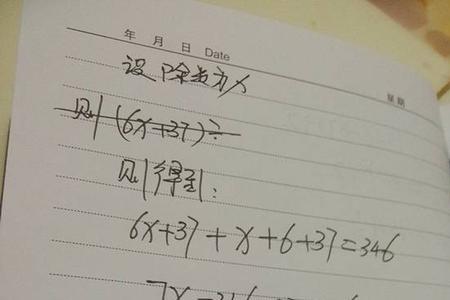 年 月 日 Date
星期
设除数为x
则(6x+37)÷
则得到:
6x+37+x+6+37=346